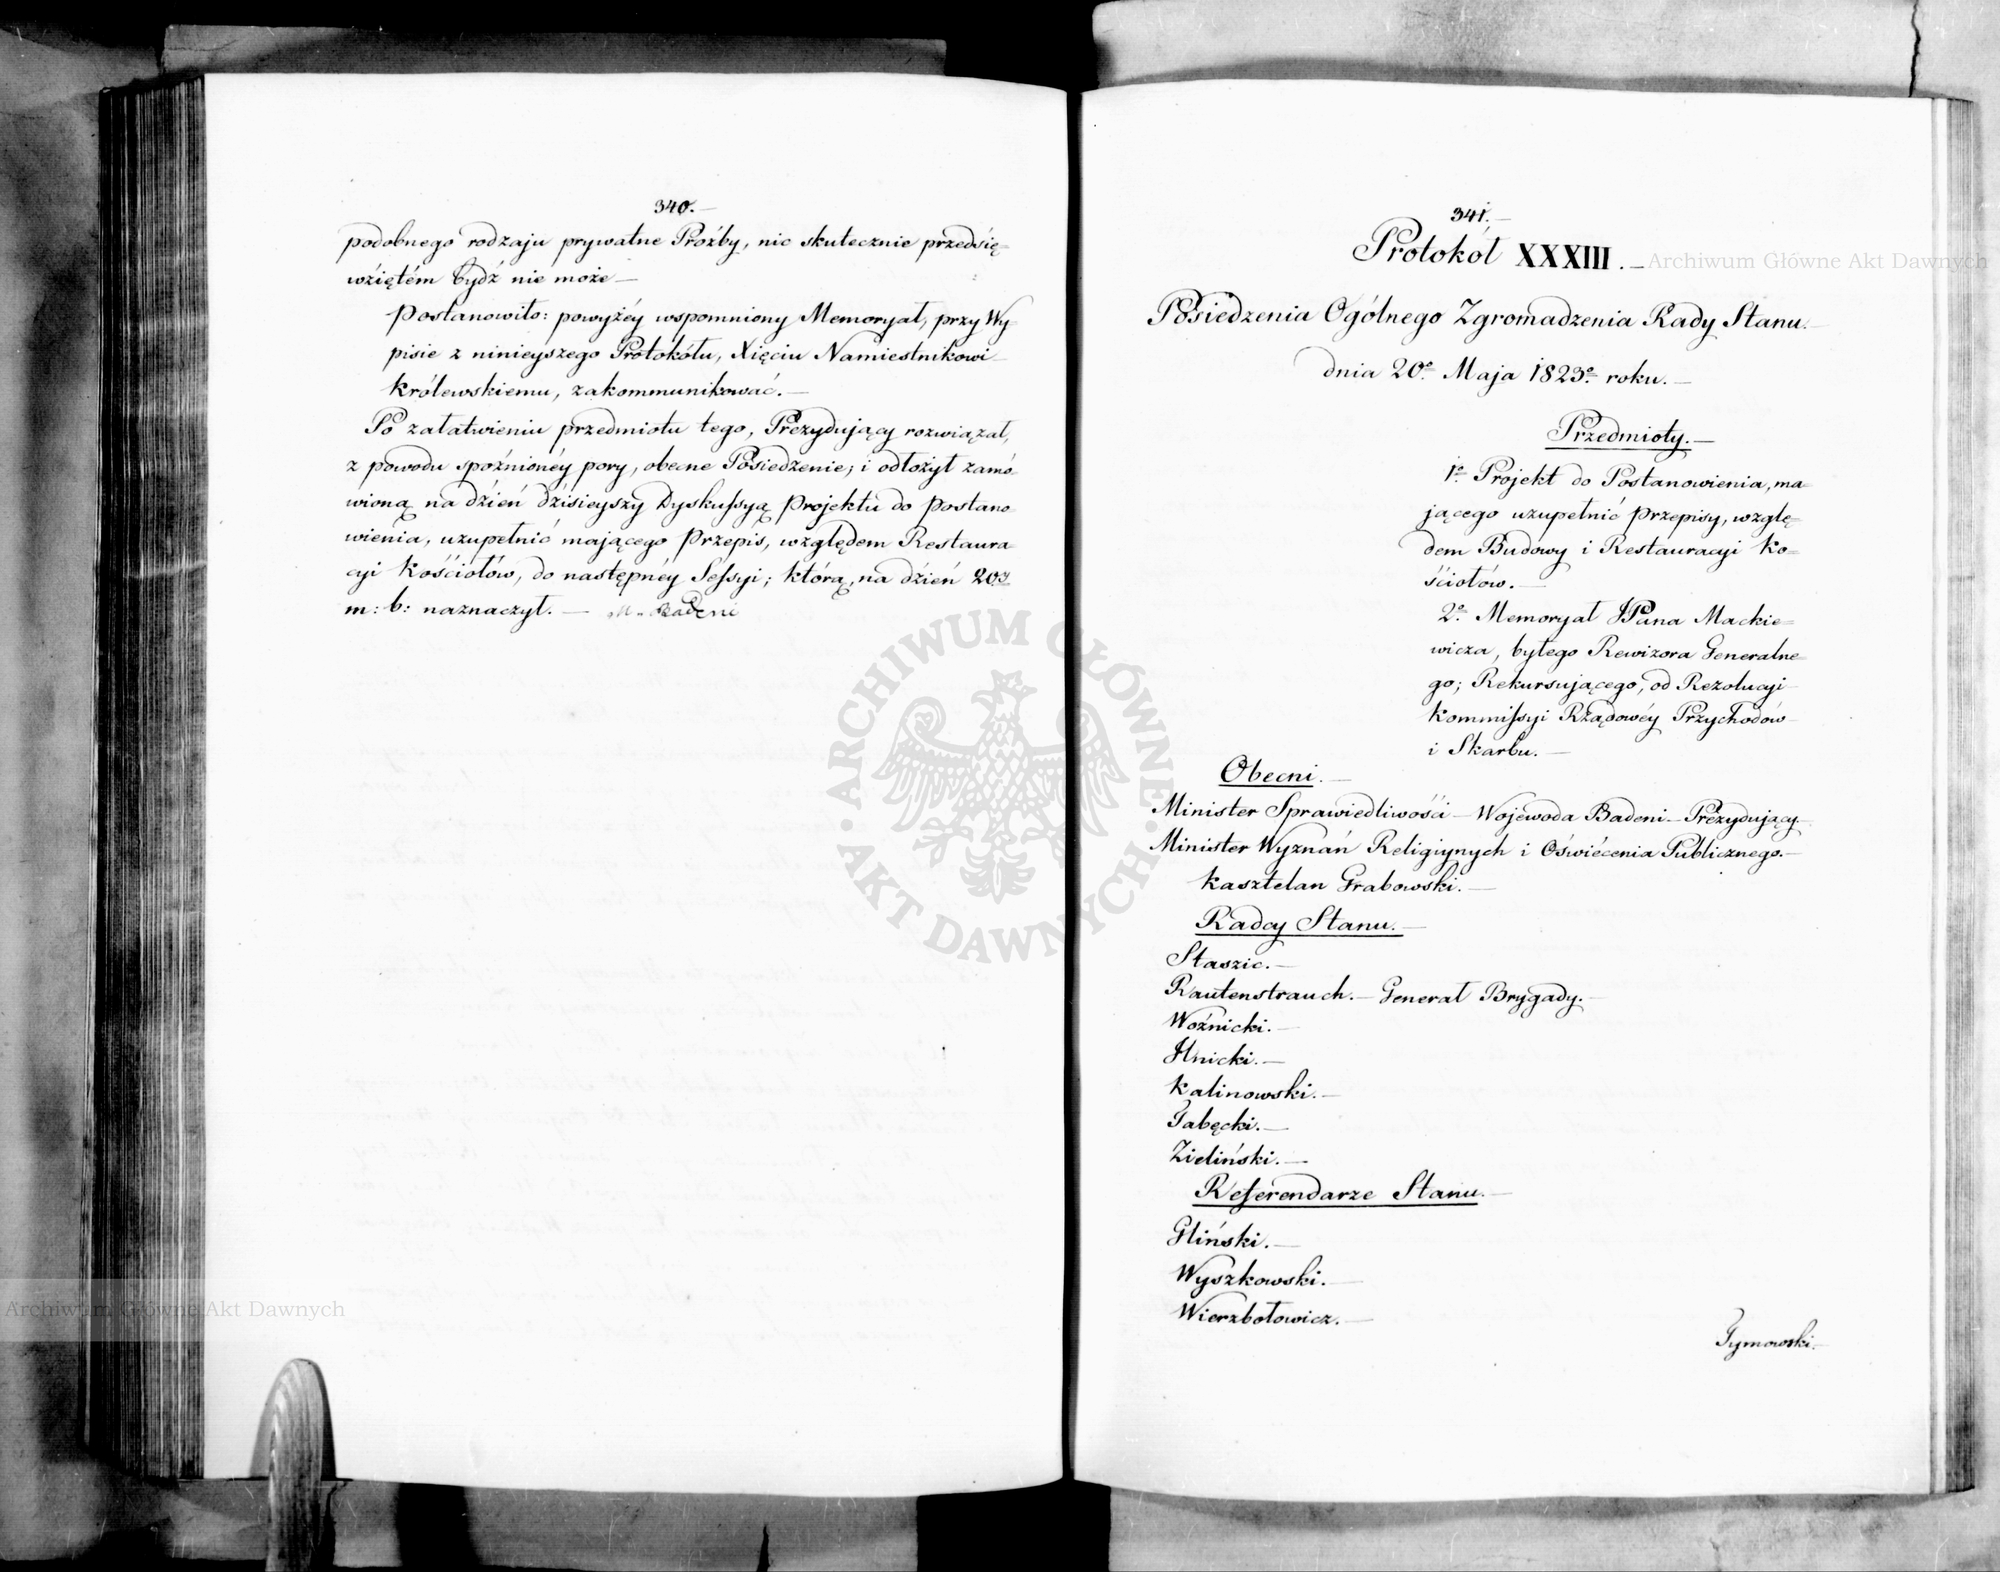 340.
podobnego rodzaju prywatne Proźby, nic skutecznie przedsię=
wziętém bydź nie może —
Postanowiło: powyżéy wspomniony Memoryał, przy Wy-
pisie z ninieyszego Protokółu, Xięciu Namiestnikowi
królewskiemu, zakommunikować. —
Po załatwieniu przedmiotu tego, Prezydujący rozwiązał,
z powodu spoźnionéy pory, obecne Posiedzenie; i odłożył zamó-
wioną na dzień dzisieyszy Dyskussyą projektu do postano-
wienia, uzupełnić mającego Przepis, względem Restaura-
cyi kościołów, do następnéy Sessyi; którą, na dzień 20go
m: b: naznaczył. — M. Badeni
341. —
Protokół XXXIII. —
Posiedzenia Ogólnego Zgromadzenia Rady Stanu. —
dnia 20o Maja 1823o roku. —
Przedmioty. —
1o Projekt do Postanowienia, ma=
jącego uzupełnić przepisy, wzglę=
dem Budowy i Restauracyi ko=
ściołów. —
2o Memoryał JPana Mackie=
wicza, byłego Rewizora Generalne=
go; Rekursującego, od Rezolucyi
kommissyi Rządowéy Przychodów
i Skarbu. —
Obecni. —
Minister Sprawiedliwości — Wojewoda Badeni — Prezydujący. —
Minister Wyznań Religiynych i Oświécenia Publicznego. —
kasztelan Grabowski. —
Radcy Stanu. —
Staszic. —
Rautenstrauch. — Generał Brygady. —
Woźnicki. —
Jłnicki. —
Kalinowski. —
Gabęcki. —
Zieliński. —
Referendarze Stanu. —
Gliński. —
Wyszkowski. —
Wierzbołowicz. —
Tymowski. —
Archiwum Główne Akt Dawnych
Archiwum Główne Akt Dawnych
ARCHIWUM GŁÓWNE AKT DAWNYCH